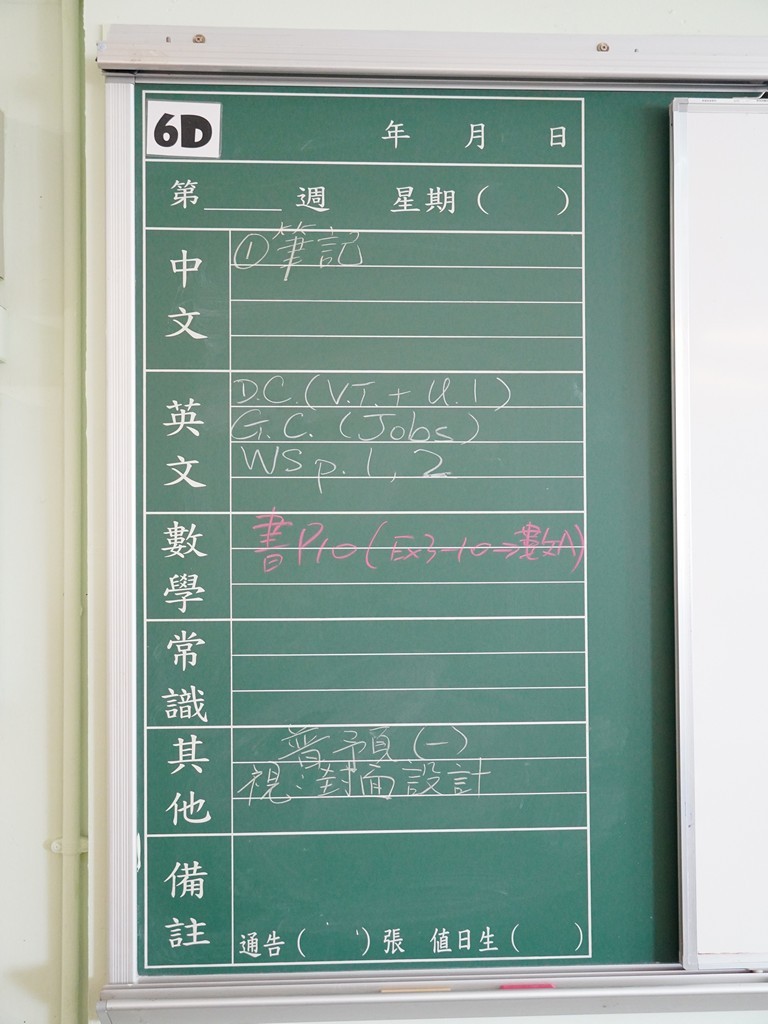 6D 年 月 日
第____週 星期( )
中文
①筆記
英文
D.C. (V.T. + U.1)
G.C. (Jobs)
WS p.1, 2
數學
書P10(Ex3-10⇒數A)
常識
其他
普預(一)
視:封面設計
備註
通告( )張 值日生( )